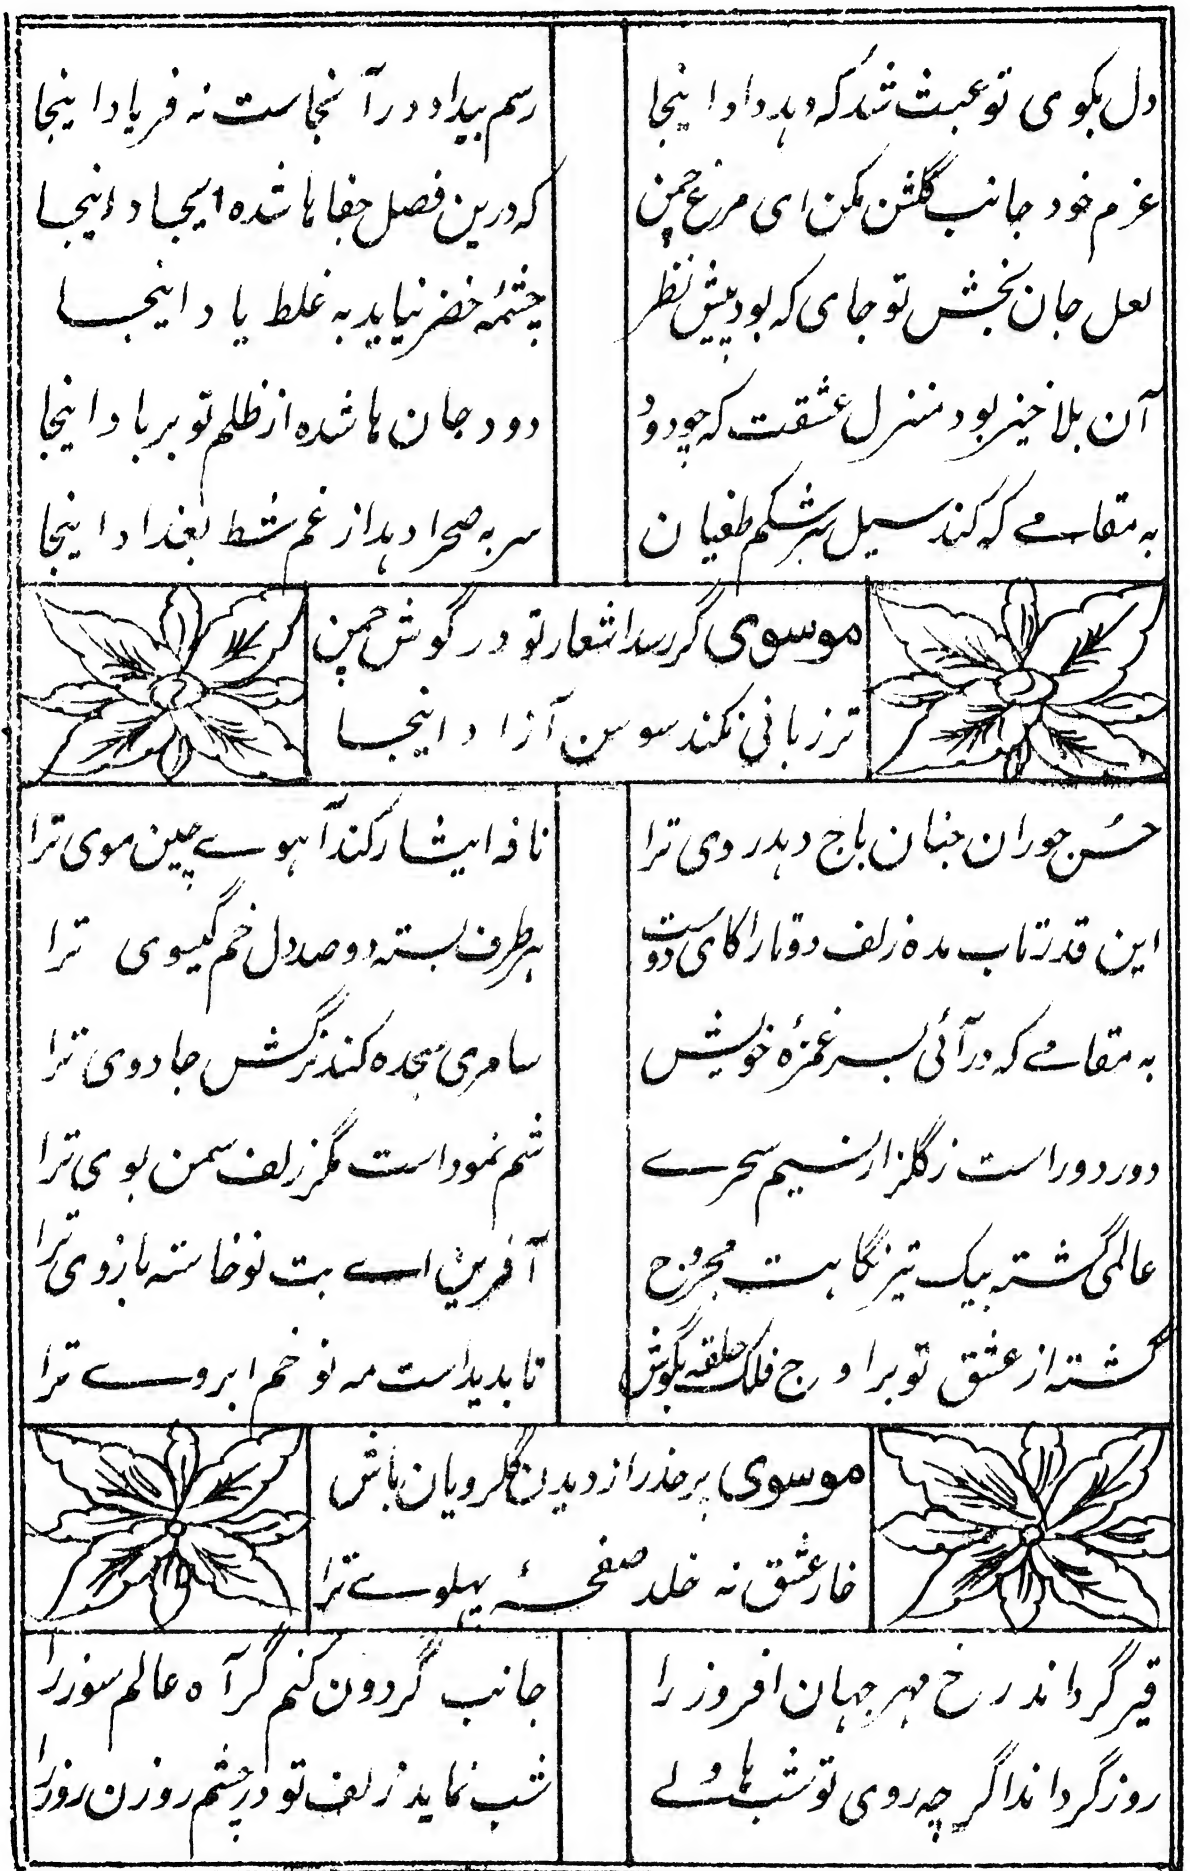 دل بکوی تو عبث شد که دهد داد اینجا
رسم بیداد در آنجاست نه فریاد اینجا
عزم خود جانب گلشن مکن ای مرغ چمن
که درین فصل جفاها شده ایجاد اینجا
لعل جان بخش تو جای که بود پیش نظر
چشمهٔ خضر نیاید به غلط یاد اینجا
آن بلا خیز بود منزل عشقت که چو دود
دود جان ها شده از ظلم تو برباد اینجا
به مقامے که کند سیل سرشکم طغیان
سر به صحرا دهد از غم شط بغداد اینجا
موسوی گر رسد اشعار تو در گوش چمن
تر زبانی نکند سوسن آزاد اینجا
حسن حوران جنان باج دهد روی ترا
نافه ایثار کند آهوے چین موی ترا
این قدر تاب مده زلف دوتا را کای دوست
هر طرف بسته دو صد دل خم گیسوی ترا
به مقامے که در آئی بسر غمزهٔ خویش
سامری سجده کند نرگس جادوی ترا
دور دور است ز گلزار نسیم سحرے
شم نمود است مگر زلف سمن بوی ترا
عالمی گشته بیک تیر نگاهت مجروح
آفرین اے بت نوخاسته بازوی ترا
گشته از عشق تو بر اوج فلک حلقه بگوش
تا بدید است مه نو خم ابروے ترا
موسوی پر حذر از دیدن گلرویان باش
خار عشق نه خلد صفحهٔ پهلوے ترا
قیر گرداند رخ مهر جهان افروز را
جانب گردون کنم گر آه عالم سوز را
روز گرداند اگر چه روی تو شبها ولے
شب نماید زلف تو در چشم روزن روز را